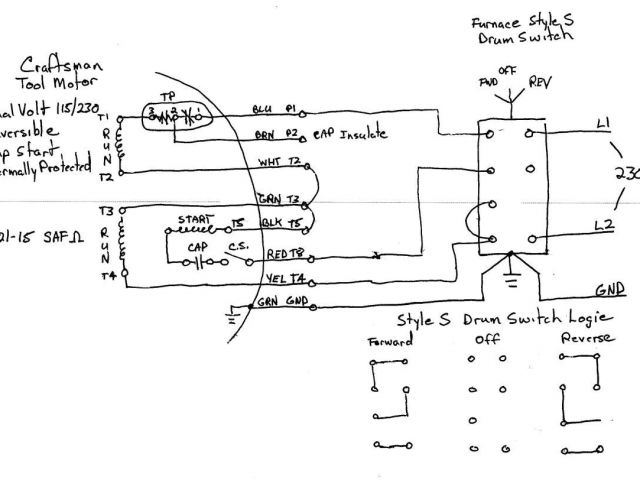 Furnace Style S
Drum Switch
Craftsman
Tool Motor
OFF
FWD
REV
TP
Volt 115/230
T1
3 2 1
BLU P1
L1
Start
RUN
BRN P2
CAP Insulate
Protected
WHT T2
T2
230
GRN T3
T3
START
T5
BLK T5
L2
RUN
CAP
C.S.
RED T8
T4
YEL T4
GRN GND
GND
Style S Drum Switch Logic
Forward
OFF
Reverse